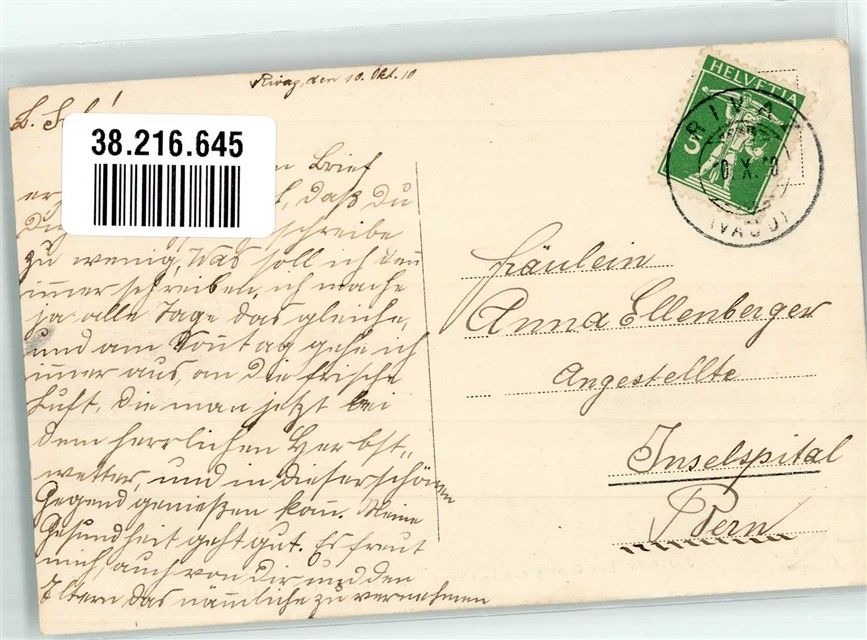 Rivaz, den 10. Okt. 10
L.
38.216.645
Brief
daß Du
schreibe
zu wenig, Was soll ich den̄
im̄er schreiben, ich mache
ja alle Tage das gleiche,
und am Son̄tag gehe ich
im̄er aus, an die frische
Luft, die man jetzt bei
dem herrlichen Herbst„
wetter, und in dieser schönen
Gegend genießen kan̄. Meine
Gesundheit geht gut. Es freut
mich, auch von Dir und den
Eltern das nämliche zu vernehmen
HELVETIA
5
RIVAZ
10.X.10
(VAUD)
Fräulein
Anna Ellenberger
Angestellte
Inselspital
Bern